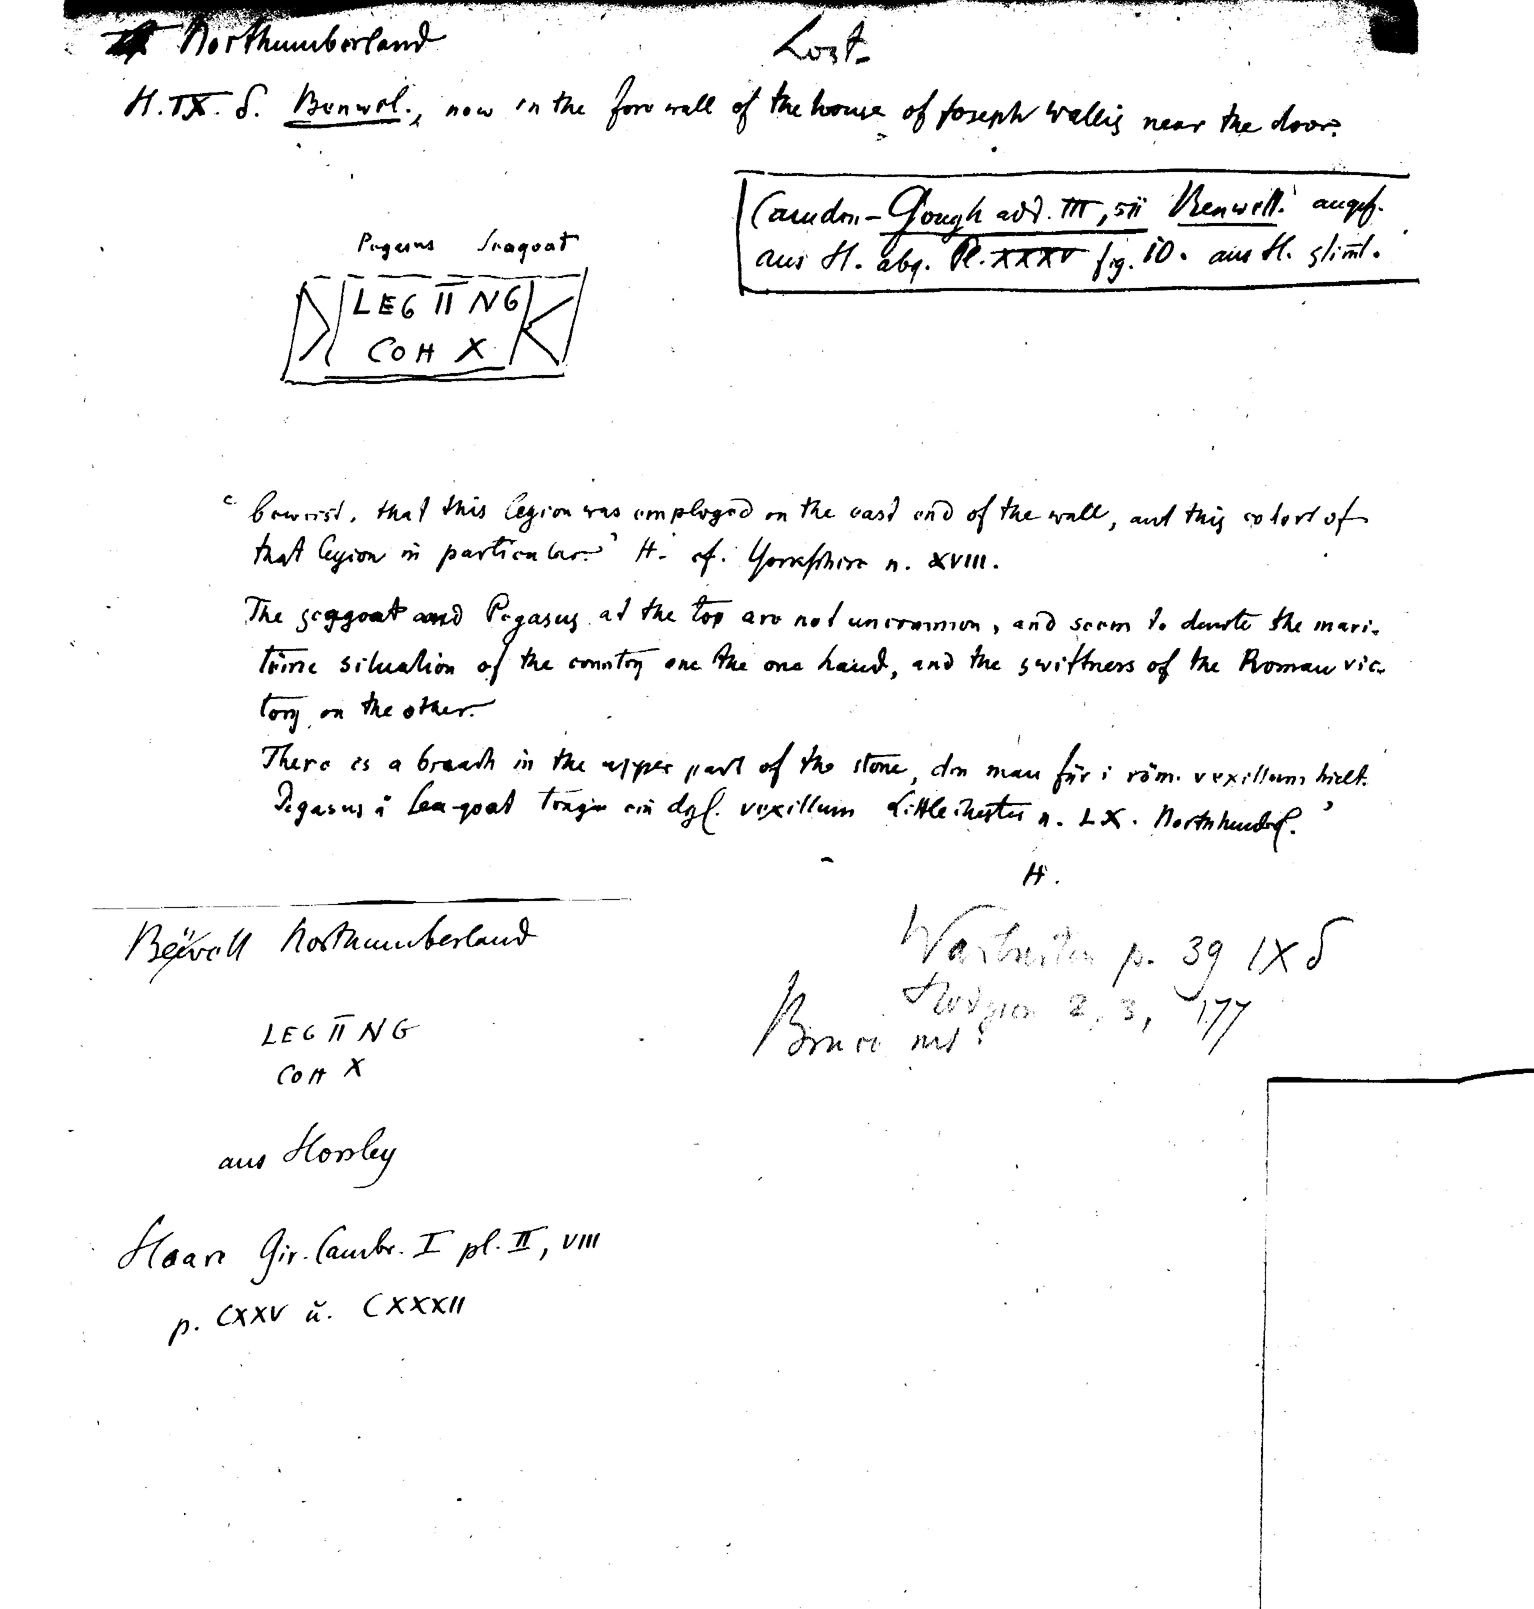 Northumberland Lost.
H. IX. δ. Benwel., now in the fore wall of the house of Joseph Wallis near the door.
Camden-Gough add. III, 511 Benwell. angef.
aus H. abg. Pl. XXXV fig. 10. aus H. stimt.
Pegasus Seagoat
LEG II NG
COH X
‘beweist, that this legion was employed on the east end of the wall, and this cohort of
that legion in particular.’ H. cf. Yorkshire n. XVIII.
The seagoat and Pegasus at the top are not uncommon, and seem to denote the mari-
time situation of the country one the one hand, and the swiftness of the Roman vic-
tory on the other.
There is a breach in the upper part of the stone, den man für 1 röm. vexillum hielt.
Pegasus u Sea-goat tragen ein dgl. vexillum Littlechester n. LX. Northumberl.’
H.
Benwell Northumberland
Warburton p. 39 IX δ
Hodgson 2, 3, 177
Bruce not?
LEG II NG
COH X
aus Horsley
Hoare Gir. Cambr. I pl. II, VIII
p. CXXV u. CXXXII